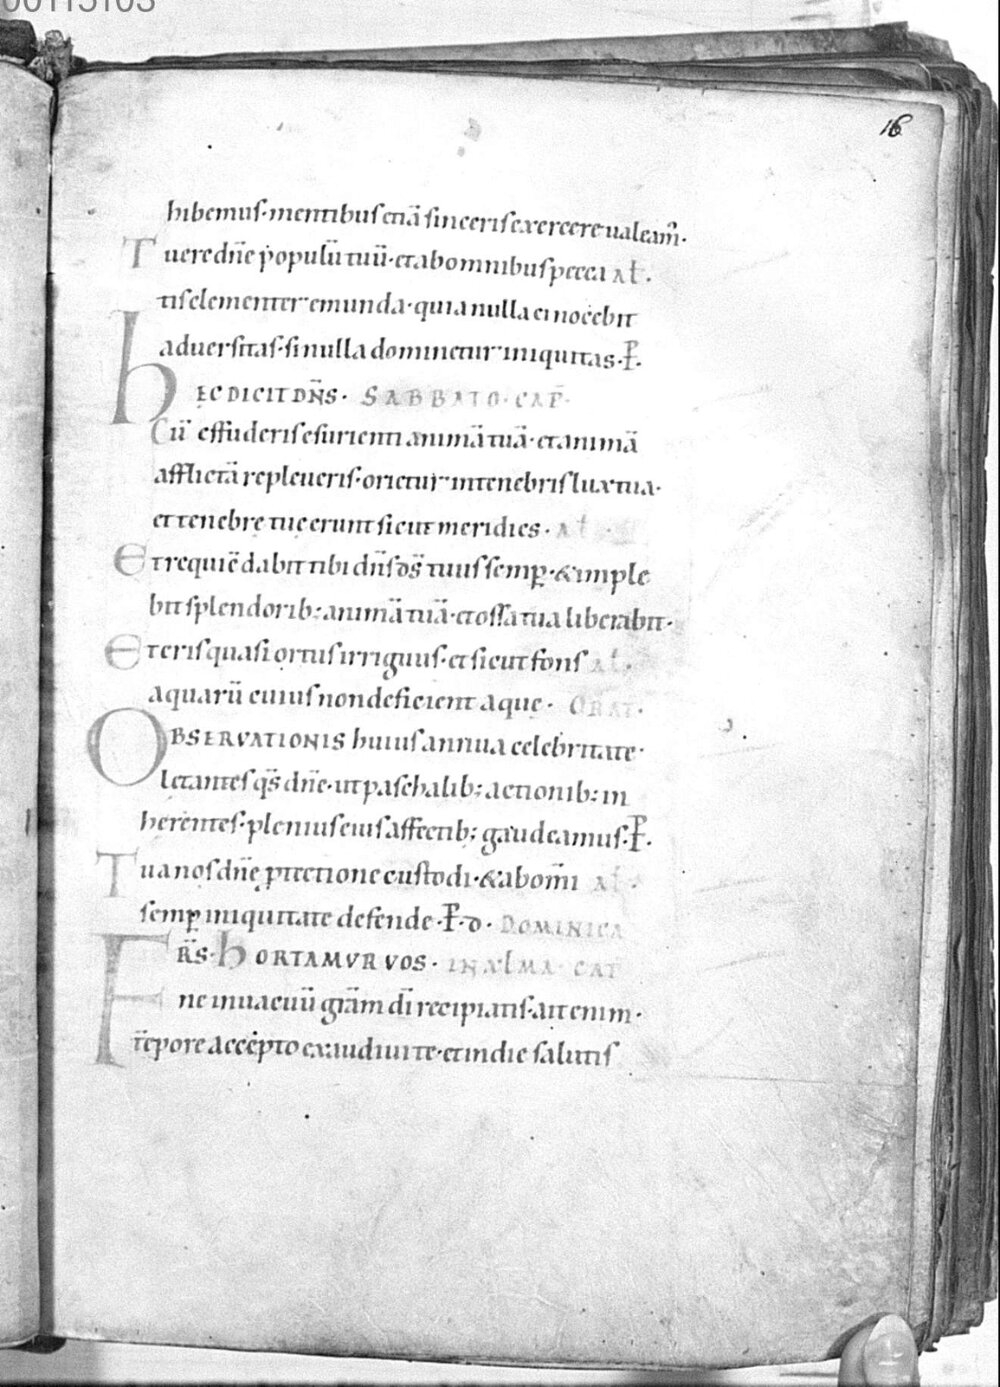 00115103
16
hibemus· mentibus etiā sinceris exercere ualeam̄·
Tuere dn̄e populū tuū· et ab omnibus pecca al̄·
tis clementer emunda· quia nulla ei nocebit
aduersitas· si nulla dominetur iniquitas· P̱·
hęc dicit dn̄s· SABBATO· CAP̄·
Cū effuderis esurienti animā tuā· et animā
afflictā repleueris· orietur in tenebris lux tua·
et tenebrę tuę erunt sicut meridies· al̄·
Et requiē dabit tibi dn̄s ds̄ tuus semp̱· & imple
bit splendorib; animā tuā· et ossa tua liberabit·
Et eris quasi ortus irriguus· et sicut fons al̄·
aquarū cuius non deficient aquę· ORAT·
OBSERVATIONIS huius annua celebritate·
letantes qs̄ dn̄e· ut paschalib; actionib; in
herentes· plenius eius affectib; gaudeamus· P̱·
Tua nos dn̄e ptectione custodi· & ab om̄i al̄·
semp̱ iniquitate defende· P̱· d· DOMINICA
FR̄S· hORTAMVR VOS· IN XLMA· CAP̄
ne in uacuū grām dī recipiatis· ait enim·
Tēpore accepto exaudiui te· et in die salutis